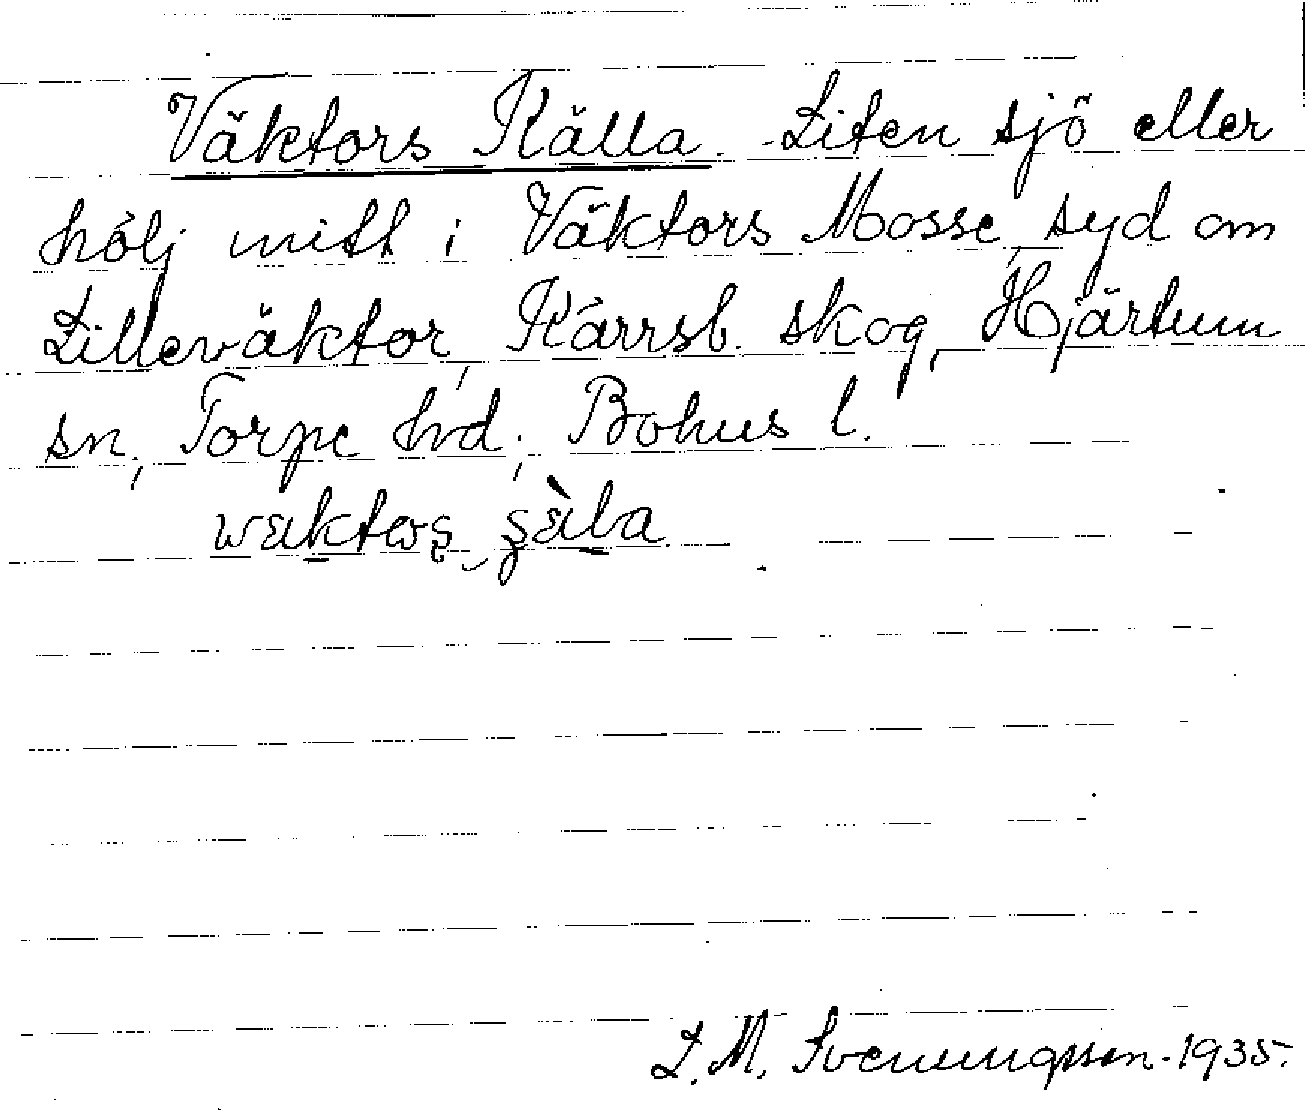 Väktors Källa. Liten sjö eller
hölj mitt i Väktors Mosse, syd om
Lilleväktor, Kärrsb. skog, Hjärtum
sn, Torpe hd, Bohus l.
L. M. Svenungsson. 1935.